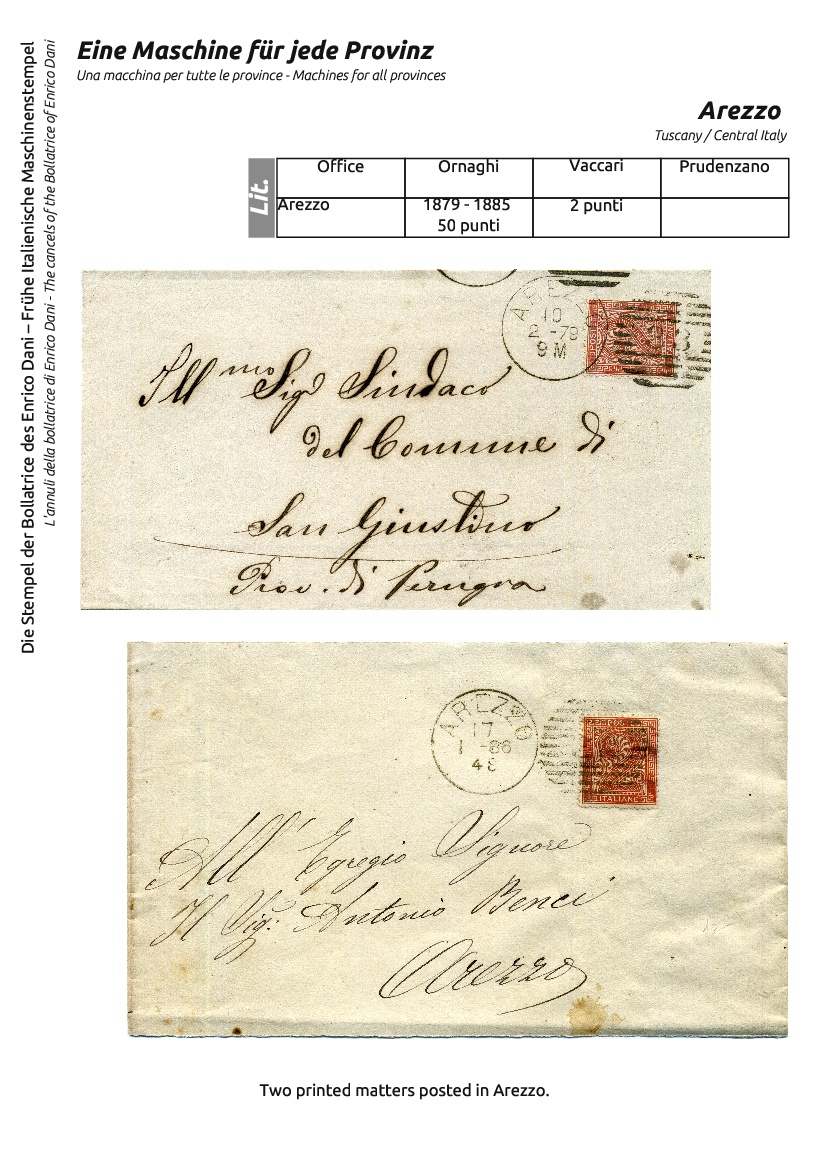 Eine Maschine für jede Provinz
Una macchina per tutte le province - Machines for all provinces
Die Stempel der Bollatrice des Enrico Dani – Frühe Italienische Maschinenstempel
L'annuli della bollatrice di Enrico Dani - The cancels of the Bollatrice of Enrico Dani
Arezzo
Tuscany / Central Italy
Lit.
Office Ornaghi Vaccari Prudenzano
Arezzo 1879 - 1885 2 punti
50 punti
AREZZO
10
2 -79
9 M
Ill mo Sigr Sindaco
del Comune di
San Giustino
Prov. di Perugia
AREZZO
17
1 -86
4 S
ITALIANE
All' Egregio Signore
Il Sig: Antonio Benci
Arezzo
Two printed matters posted in Arezzo.